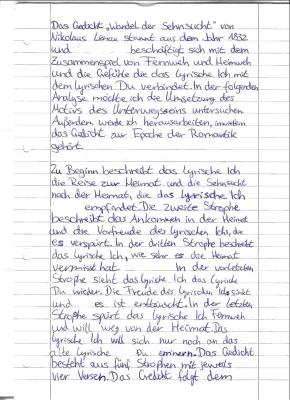 Das Gedicht „Wandel der Sehnsucht" von
Nikolaus Lenau stammt aus dem Jahr 1832
und beschäftigt sich mit dem
Zusammenspiel von Fernweh und Heimweh
und die Gefühle die das Lyrische Ich mit
dem lyrischen Du verbindet. In der folgenden
Analyse möchte ich die Umsetzung des
Motivs des Unterwegsseins untersuchen
Außerdem werde ich herausarbeiten, inwiefern
das Gedicht zur Epoche der Romantik
gehört.
Zu Beginn beschreibt das Lyrische Ich
die Reise zur Heimat und die Sehnsucht
nach der Heimat, die das lyrische Ich
empfindet. Die zweite Strophe
beschreibt das Ankommen in der Heimat
und die Vorfreude des Lyrischen Ich, die
es verspürt. In der dritten Strophe beschreibt
das Lyrische Ich, wie sehr es die Heimat
vermisst hat. In der vorletzten
Strophe sieht das lyrische Ich das Lyrische
Du wieder. Die Freude des Lyrischen Ich
und es ist enttäuscht. In der letzten
Strophe spürt das lyrische Ich Fernweh
und will weg von der Heimat. Das
lyrische Ich will sich nur noch an das
alte Lyrische Du erinnern. Das Gedicht
besteht aus fünf Strophen mit jeweils
vier Versen. Das Gedicht folgt dem